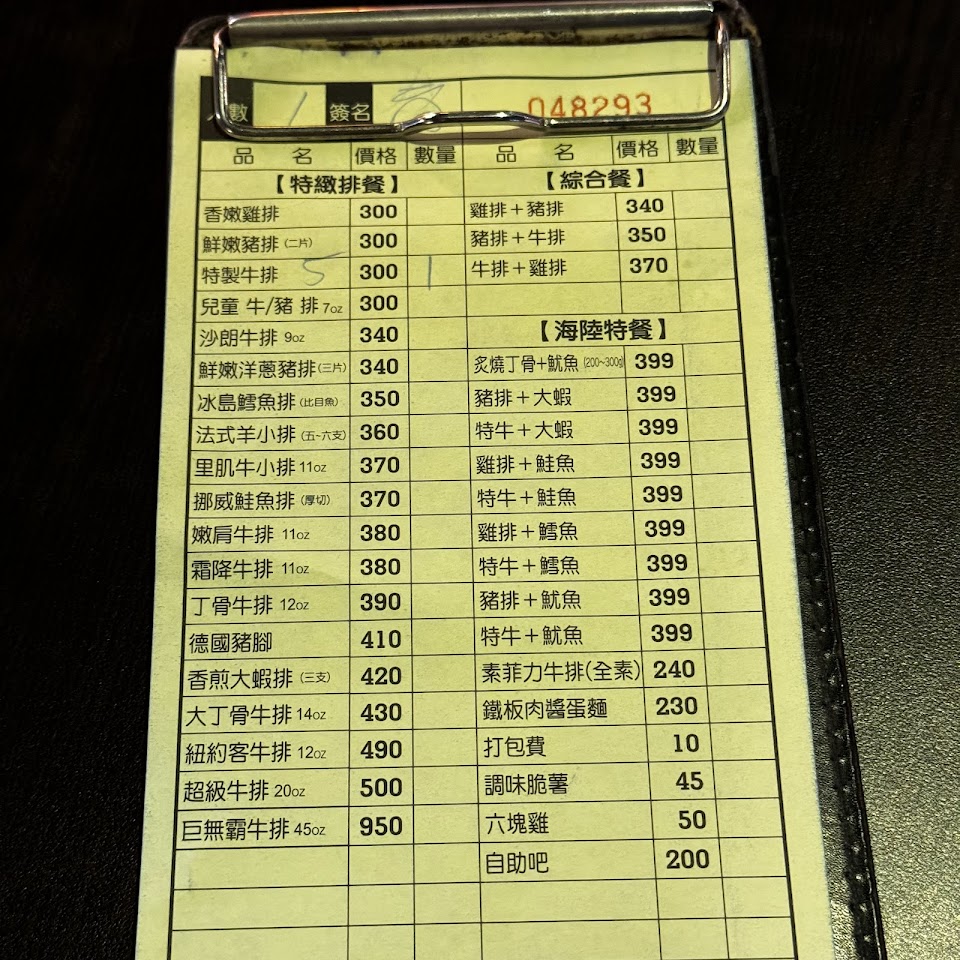 人數 1 簽名 048293
品名 價格 數量
【特緻排餐】
香嫩雞排 300
鮮嫩豬排(二片) 300
特製牛排 5 300 1
兒童 牛/豬 排 7oz 300
沙朗牛排 9oz 340
鮮嫩洋蔥豬排(三片) 340
冰島鱈魚排(比目魚) 350
法式羊小排(五~六支) 360
里肌牛小排 11oz 370
挪威鮭魚排(厚切) 370
嫩肩牛排 11oz 380
霜降牛排 11oz 380
丁骨牛排 12oz 390
德國豬腳 410
香煎大蝦排(三支) 420
大丁骨牛排 14oz 430
紐約客牛排 12oz 490
超級牛排 20oz 500
巨無霸牛排 45oz 950
品名 價格 數量
【綜合餐】
雞排+豬排 340
豬排+牛排 350
牛排+雞排 370
【海陸特餐】
炙燒丁骨+魷魚(200~300g) 399
豬排+大蝦 399
特牛+大蝦 399
雞排+鮭魚 399
特牛+鮭魚 399
雞排+鱈魚 399
特牛+鱈魚 399
豬排+魷魚 399
特牛+魷魚 399
素菲力牛排(全素) 240
鐵板肉醬蛋麵 230
打包費 10
調味脆薯 45
六塊雞 50
自助吧 200